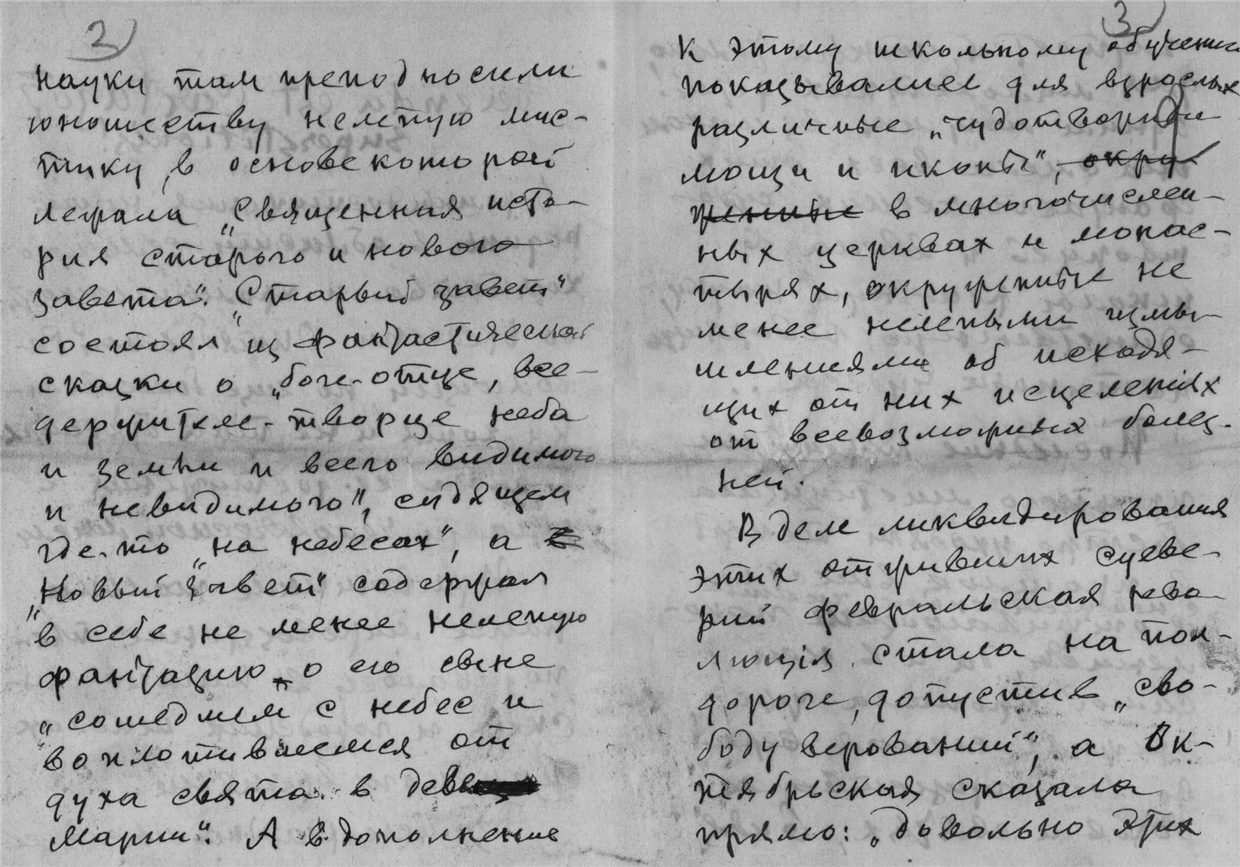 2)
науки там преподносили
юношеству нелепую мис-
тику, в основе которой
лежала „Священная исто-
рия старого и нового
завета“. „Старый завет“
состоял из фантастической
сказки о „боге-отце, все-
держителе-творце неба
и земли и всего видимого
и невидимого“, сидящем
где-то „на небесах“, а
„Новый завет“ содержал
в себе не менее нелепую
фантазию о его сыне
„сошедшем с небес и
воплотившемся от
духа свята в деве
Марии“. А в дополнение
3)
к этому школьному обучению
показывались для взрослых
различные „чудотворные
мощи и иконы“, окру
женные в многочислен-
ных церквах и монас-
тырях, окруженные не
менее нелепыми измы-
шлениями об исходя-
щих от них исцелениях
от всевозможных болез-
ней.
В деле ликвидирования
этих отживших суеве-
рий февральская рево-
люция стала на пол-
дороге, допустив „сво-
боду верований“, а Ок-
тябрьская сказала
прямо: „довольно этих